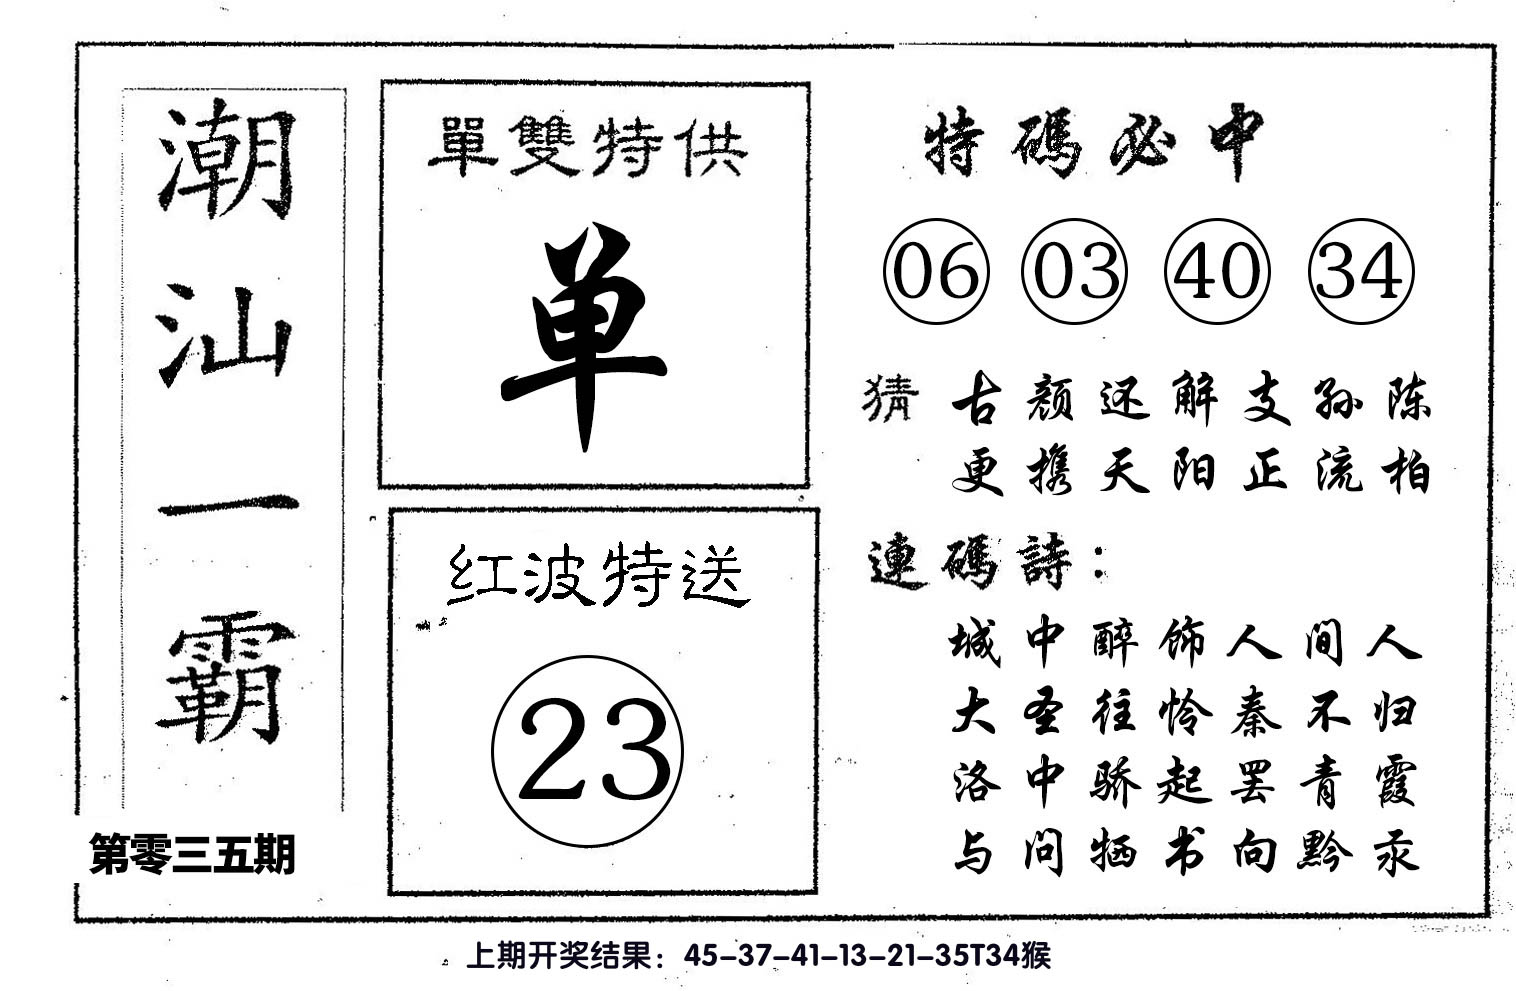 潮汕一霸
第零三五期
單雙特供
单
红波特送
23
特碼必中
06 03 40 34
猜 古颜还解支孙陈
更携天阳正流柏
連碼詩：
城中醉饰人间人
大圣往怜秦不归
洛中骄起罢青霞
与问牺书向黔汞
上期开奖结果：45-37-41-13-21-35T34猴